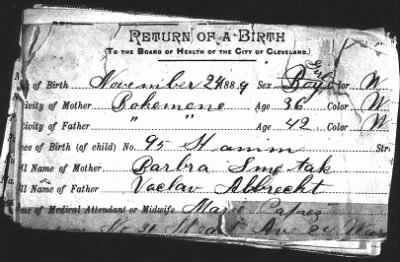 RETURN OF A BIRTH
(TO THE BOARD OF HEALTH OF THE CITY OF CLEVELAND.)
of Birth November 24 1889 Sex Boy Girl Color W
ivity of Mother Bohemene Age 36 Color W
ivity of Father " " Age 42 Color W
ce of Birth (of child) No. 95 Hamm Str
ll Name of Mother Barbra Smetak
ll Name of Father Vaclav Albrecht
me of Medical Attendant or Midwife Marie